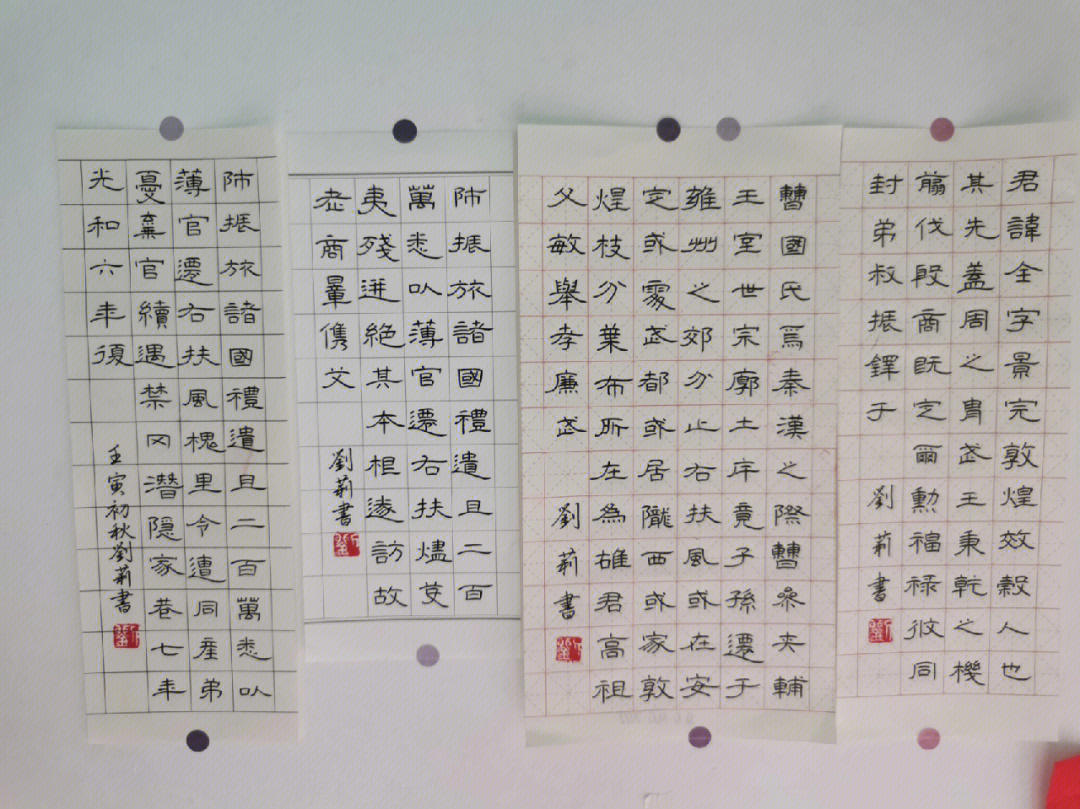 君諱全字景完敦煌效穀人也
其先蓋周之胄武王秉乾之機
翦伐殷商既定爾勳福祿攸同
封弟叔振鐸于
劉莉書
曹國氏焉秦漢之際曹參夾輔
王室世宗廓土斥竟子孫遷于
雍州之郊分止右扶風或在安
定或處武都或居隴西或家敦
煌枝分葉布所在為雄君高祖
父敏舉孝廉武
劉莉書
師振旅諸國禮遺且二百
萬悉以薄官遷右扶燼芟
夷殘迸絕其本根遂訪故
老商量儁艾
劉莉書
師振旅諸國禮遺且二百萬悉以
薄官遷右扶風槐里令遭同產弟
憂棄官續遇禁冈潛隱家巷七年
光和六年復
壬寅初秋劉莉書